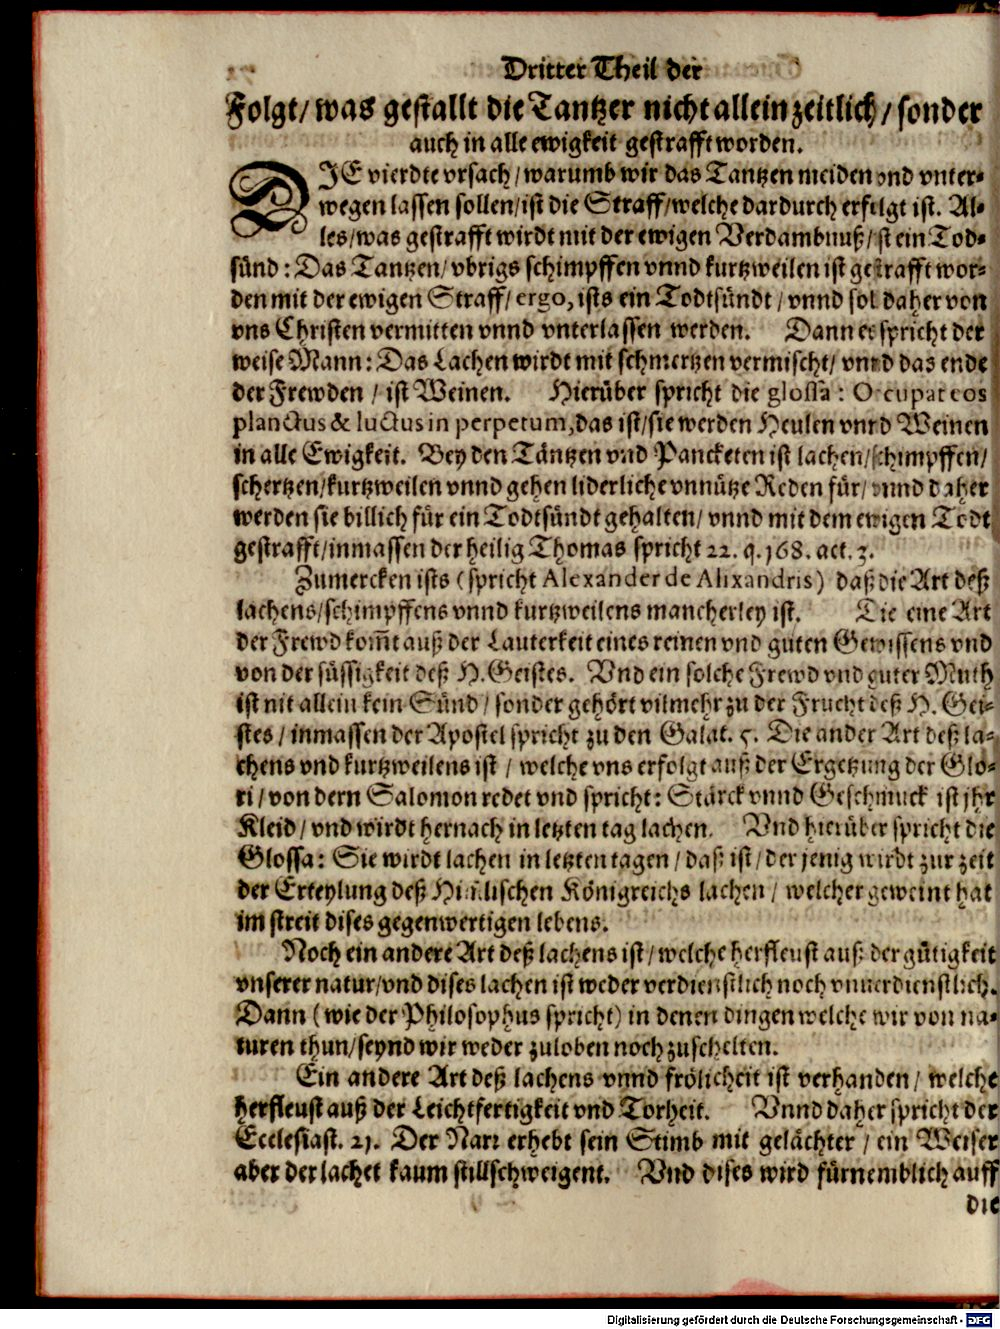 Dritter Theil der
Folgt/ was gestallt die Tantzer nicht allein zeitlich/ sonder
auch in alle ewigkeit gestrafft worden.
DIE vierdte vrsach/ warumb wir das Tantzen meiden vnd vnter-
wegen lassen sollen/ist die Straff/welche dardurch erfolgt ist. Al-
les/was gestrafft wirdt mit der ewigen Verdambnuß/ist ein Tod-
sünd: Das Tantzen/ vbrigs schimpffen vnnd kurtzweilen ist gestrafft wor-
den mit der ewigen Straff/ ergo, ists ein Todtsündt/ vnnd sol daher von
vns Christen vermitten vnnd vnterlassen werden. Dann es spricht der
weise Mann: Das Lachen wirdt mit schmertzen vermischt/ vnnd das ende
der Frewden / ist Weinen. Hierüber spricht die glossa: Occupat eos
planctus & luctus in perpetum, das ist/sie werden Heulen vnnd Weinen
in alle Ewigkeit. Bey den Täntzen vnd Pancketen ist lachen/schimpffen/
schertzen/kurtzweilen vnnd gehen liderliche vnnütze Reden für/ vnnd daher
werden sie billich für ein Todtsündt gehalten/ vnnd mit dem ewigen Todt
gestrafft/inmassen der heilig Thomas spricht 22. q. 168. act. 3.
Zumercken ists (spricht Alexander de Alixandris) daß die Art deß
lachens/schimpffens vnnd kurtzweilens mancherley ist. Die eine Art
der Frewd kom̃t auß der Lauterkeit eines reinen vnd guten Gewissens vnd
von der süssigkeit deß H. Geistes. Vnd ein solche Frewd vnd guter Muth
ist nit allein kein Sünd / sonder gehört vilmehr zu der Frucht deß H. Gei-
stes / inmassen der Apostel spricht zu den Galat. 5. Die ander Art deß la-
chens vnd kurtzweilens ist / welche vns erfolgt auß der Ergetzung der Glo-
ri/ von dern Salomon redet vnd spricht: Stärck vnnd Geschmuck ist jhr
Kleid/ vnd wirdt hernach in letzten tag lachen. Vnd hierüber spricht die
Glossa: Sie wirdt lachen in letzten tagen/ daß ist/ der jenig wirdt zur zeit
der Erteylung deß Him̃lischen Königreichs lachen/ welcher geweint hat
im streit dises gegenwertigen lebens.
Noch ein andere Art deß lachens ist/welche herfleust auß der gütigkeit
vnserer natur/vnd dises lachen ist weder verdienstlich noch vnuerdienstlich.
Dann (wie der Philosophus spricht) in denen dingen welche wir von na-
turen thun/seynd wir weder zuloben noch zuschelten.
Ein andere Art deß lachens vnnd frölicheit ist verhanden/ welche
herfleust auß der Leichtfertigkeit vnd Torheit. Vnnd daher spricht der
Ecclesiast. 21. Der Narr erhebt sein Stimb mit gelächter/ ein Weiser
aber der lachet kaum stillschweigent. Vnd dises wird fürnemblich auff
die
Digitalisierung gefördert durch die Deutsche Forschungsgemeinschaft - DFG